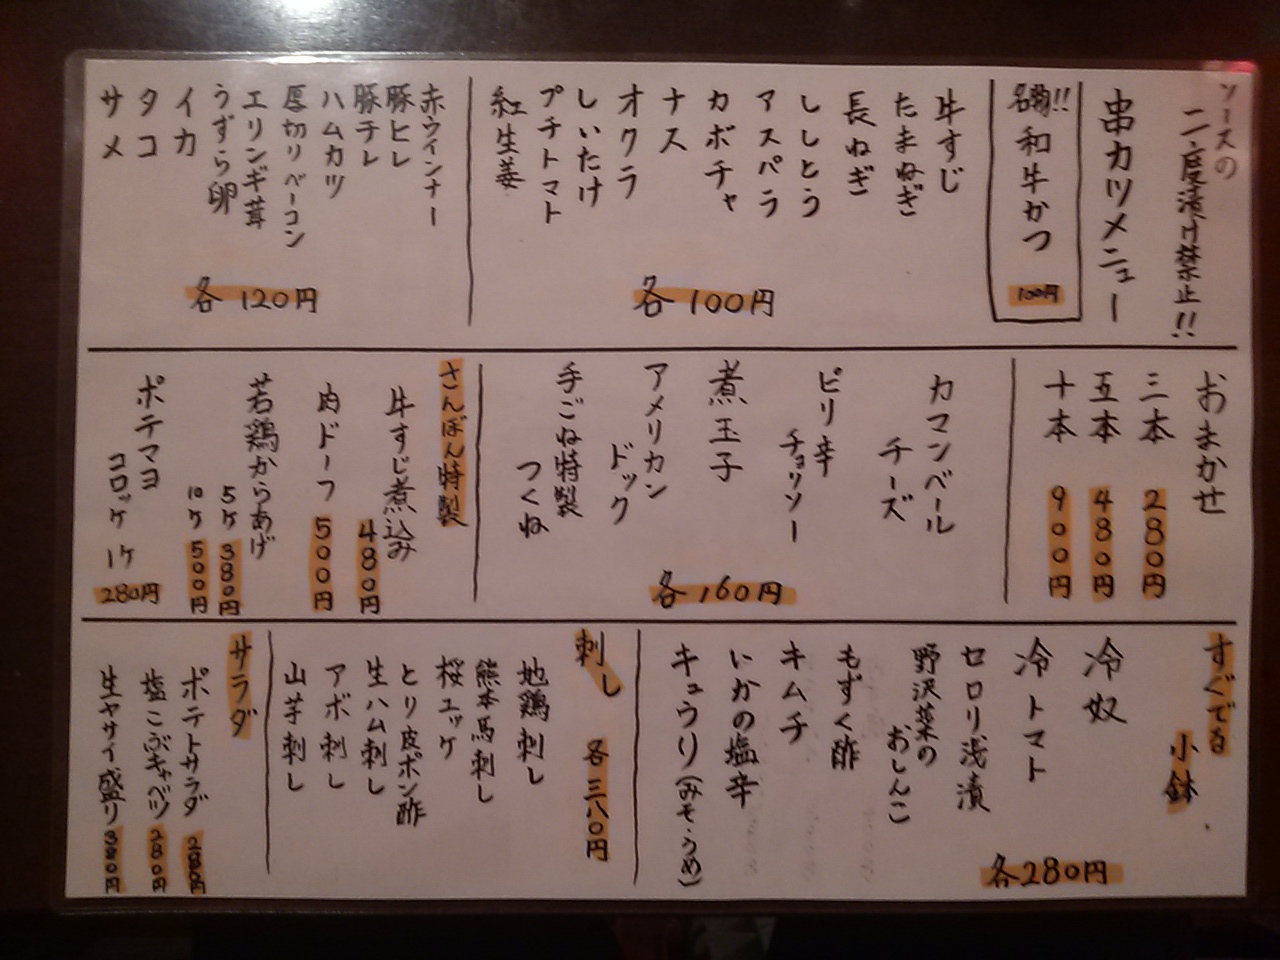 ソースの
二度漬け禁止!!
串カツメニュー
名物!! 和牛かつ 100円
牛すじ
たまねぎ
長ねぎ
ししとう
アスパラ
カボチャ
ナス
オクラ
しいたけ
プチトマト
紅生姜
各100円
赤ウィンナー
豚ヒレ
豚テレ
ハムカツ
厚切りベーコン
エリンギ茸
うずら卵
イカ
タコ
サメ
各120円
おまかせ
三本 280円
五本 480円
十本 900円
カマンベール
チーズ
ピリ辛
チョリソー
煮玉子
アメリカン
ドック
手ごね特製
つくね
各160円
さんぼん特製
牛すじ煮込み 480円
肉ドーフ 500円
若鶏からあげ
5ヶ 380円
10ヶ 500円
ポテマヨ
コロッケ 1ヶ 280円
すぐでる
小鉢
冷奴
冷トマト
セロリ浅漬
野沢菜の
おしんこ
もずく酢
キムチ
いかの塩辛
キュウリ(みそ・うめ)
各280円
刺し 各三八〇円
地鶏刺し
熊本馬刺し
桜ユッケ
とり皮ポン酢
生ハム刺し
アボ刺し
山芋刺し
サラダ
ポテトサラダ 280円
塩こぶキャベツ 280円
生ヤサイ盛り 380円